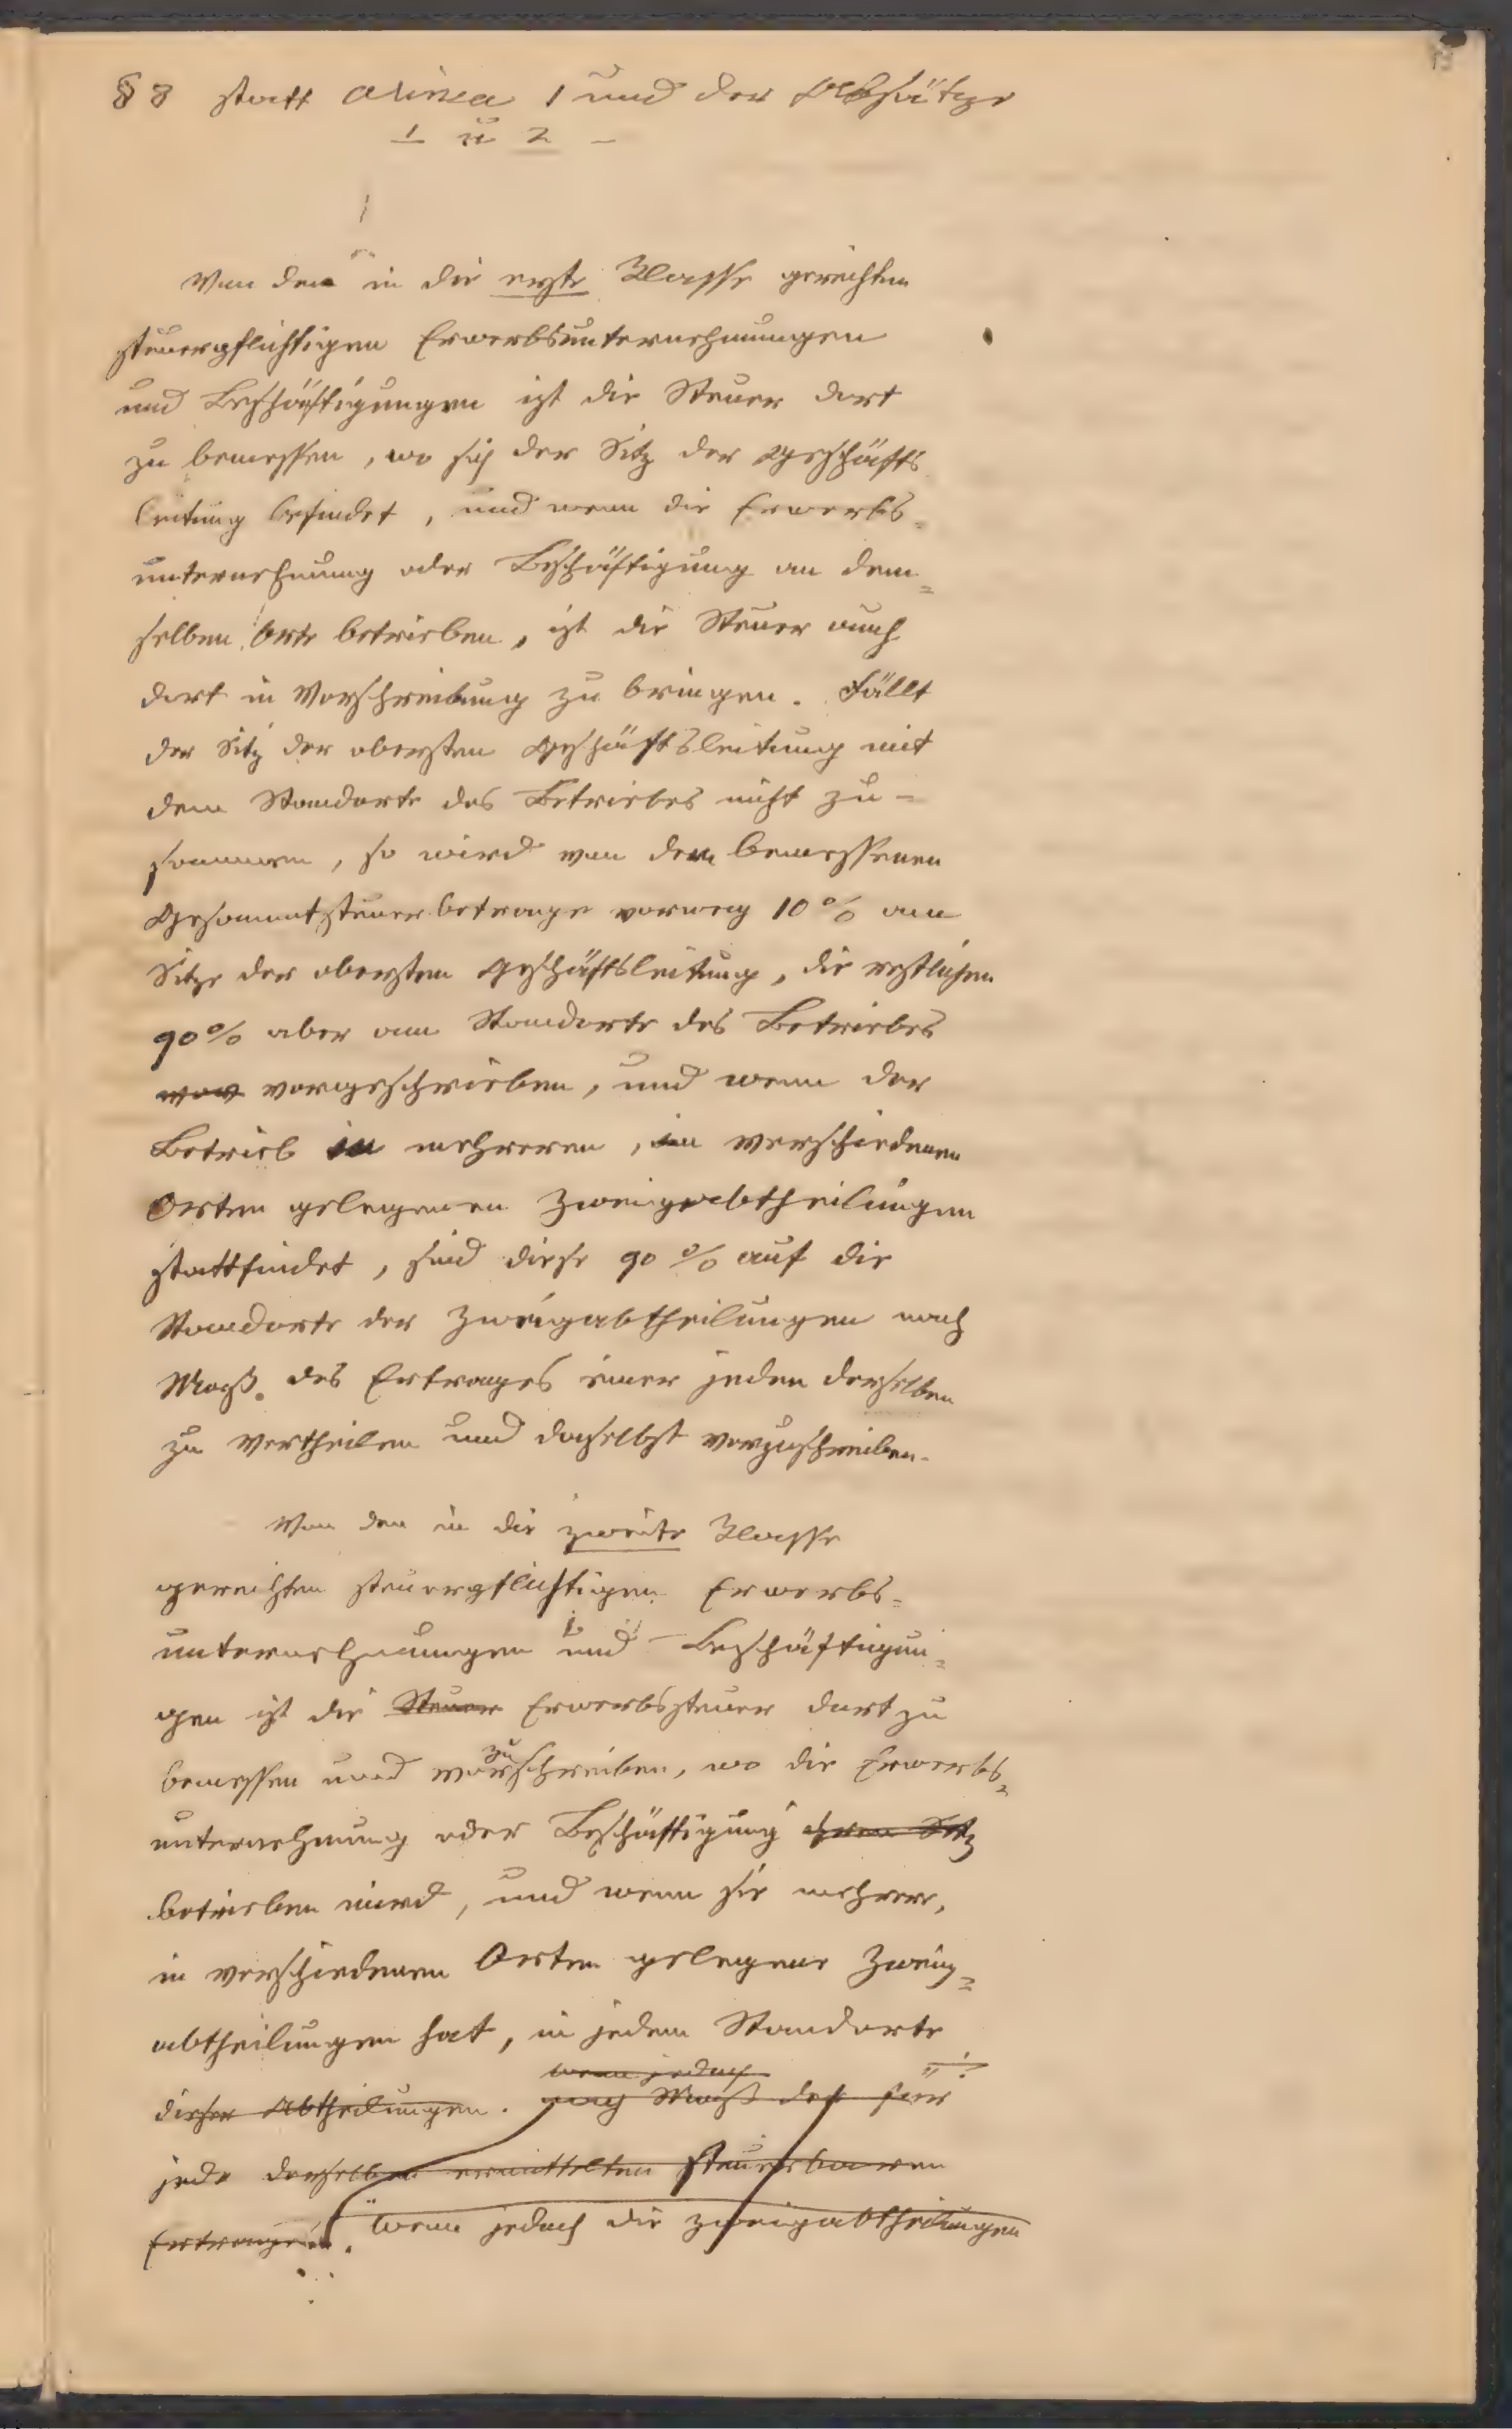 § 8 statt alinea 1 und der Absätze
1 u 2 –
Von den in die erste Klasse gereihten
steuerpflichtigen Erwerbsunternehmungen
und Beschäftigungen ist die Steuer dort
zu bemessen, wo sich der Sitz der Geschäfts
leitung befindet, und wenn die Erwerbs-
unternehmung oder Beschäftigung an dem-
selben Orte betrieben, ist die Steuer auch
dort in Vorschreibung zu bringen. Fällt
der Sitz der obersten Geschäftsleitung mit
dem Standorte des Betriebes nicht zu-
sammen, so wird von dem bemessenen
Gesammtsteuerbetrage vorweg 10% am
Sitze der obersten Geschäftsleitung, die restlichen
90% aber am Standorte des Betriebes
vorgeschrieben, und wenn der
Betrieb in mehreren, in verschiedenen
Orten gelegenen Zweigabtheilungen
stattfindet, sind diese 90% auf die
Standorte der Zweigabtheilungen nach
Maß des Ertrages einer jeden derselben
zu vertheilen und daselbst vorzuschreiben.
Von den in die zweite Klasse
gereihten steuerpflichtigen Erwerbs-
unternehmungen und Beschäftigun-
gen ist die Steuer Erwerbssteuer dort zu
bemessen und vorzuschreiben, wo die Erwerbs-
unternehmung oder Beschäftigung ihren Sitz
betrieben wird, und wenn sie mehrere,
in verschiedenen Orten gelegene Zweig-
abtheilungen hat, in jedem Standorte
wenn jedoch
dieser Abtheilungen. nach Maß des für
jede derselben ermittelten steuerbaren
Ertrages. wenn jedoch die Zweigabtheilungen